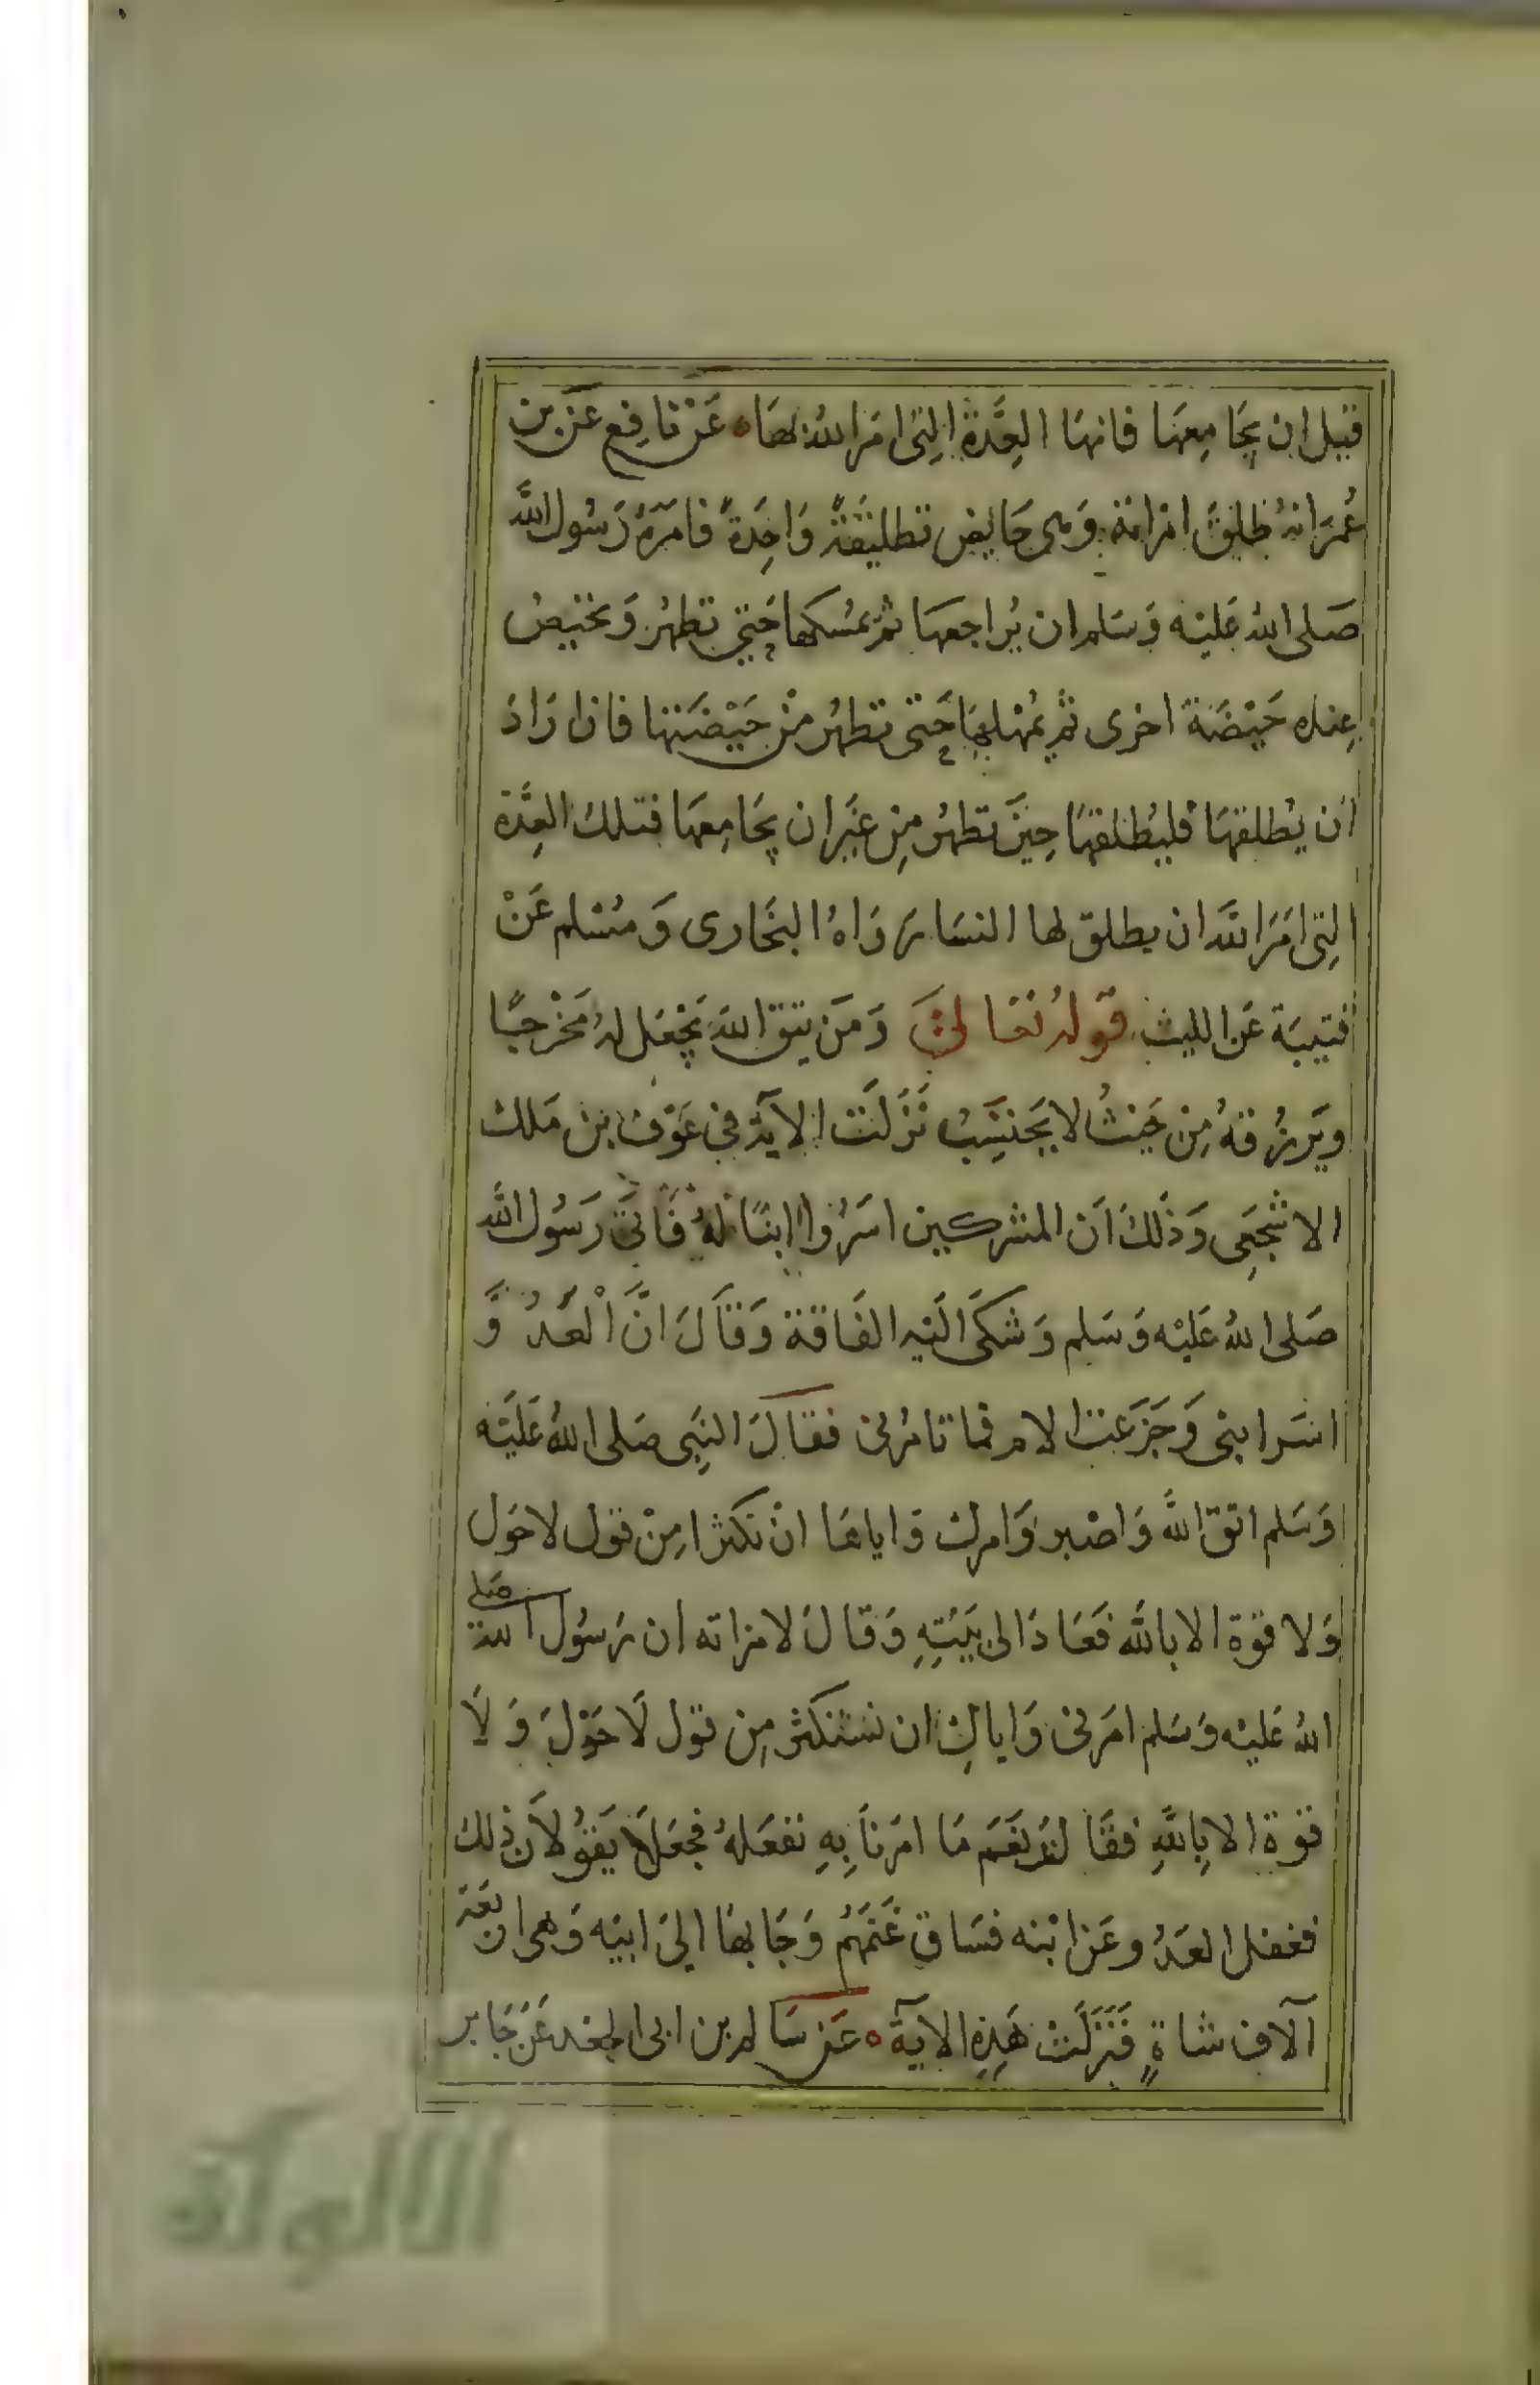 قبل ان يجامعها فانها العدة التى امر الله لها ه عن نافع عن بن
عمر انه طلق امراته وهى حايض تطليقة واحدة فامره رسول الله
صلى الله عليه وسلم ان يراجعها ثم يمسكها حتى تطهر وتحيض
عنده حيضة اخرى ثم يمهلها حتى تطهر من حيضتها فان اراد
ان يطلقها فليطلقها حين تطهر من غير ان يجامعها فتلك العدة
التى امر الله ان يطلق لها النسا رواه البخارى ومسلم عن
قتيبة عن الليث قوله تعالى ومن يتق الله يجعل له مخرجا
ويرزقه من حيث لا يحتسب نزلت الاية في عوف بن ملك
الاشجعى وذلك ان المشركين اسروا ابنا له فاتى رسول الله
صلى الله عليه وسلم وشكى اليه الفاقة وقال ان العدو
اسر ابنى وجزعت الام فما تامرنى فقال النبى صلى الله عليه
وسلم اتق الله واصبر وامرك واياها ان تكثرا من قول لا حول
ولا قوة الا بالله فعاد الى بيته وقال لامراته ان رسول الله صلى
الله عليه وسلم امرنى واياك ان نستكثر من قول لا حول ولا
قوة الا بالله فقالت نعم ما امرنا به نفعله فجعلا يقولان ذلك
فغفل العدو عن ابنه فساق غنمهم وجا بها الى ابيه وهى اربعة
آلاف شاة فنزلت هذه الاية ه عن سالم بن ابى الجعد عن جابر
الألوكة